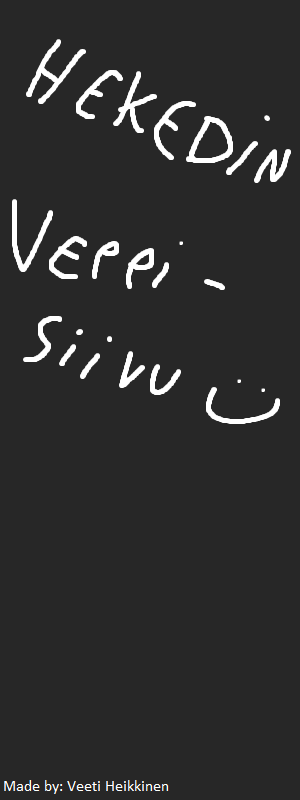 HEKEDiN
VEPPi-
Siivu
Made by: Veeti Heikkinen